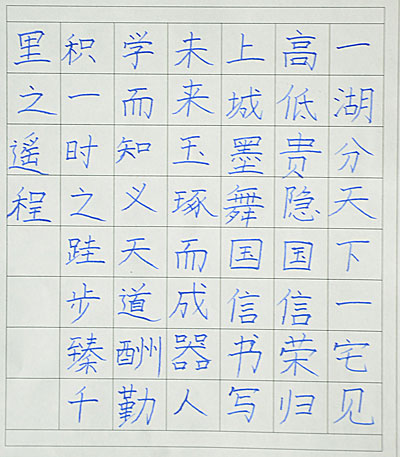 一湖分天下一宅见
高低贵隐国信荣归
上城墨舞国信书写
未来玉琢而成器人
学而知义天道酬勤
积一时之跬步臻千
里之遥程